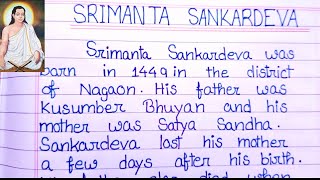 SRIMANTA SANKARDEVA
Srimanta Sankardeva was
born in 1449 in the district
of Nagaon. His father was
Kusumber Bhuyan and his
mother was Satya Sandha.
Sankardeva lost his mother
a few days after his birth.
also died when